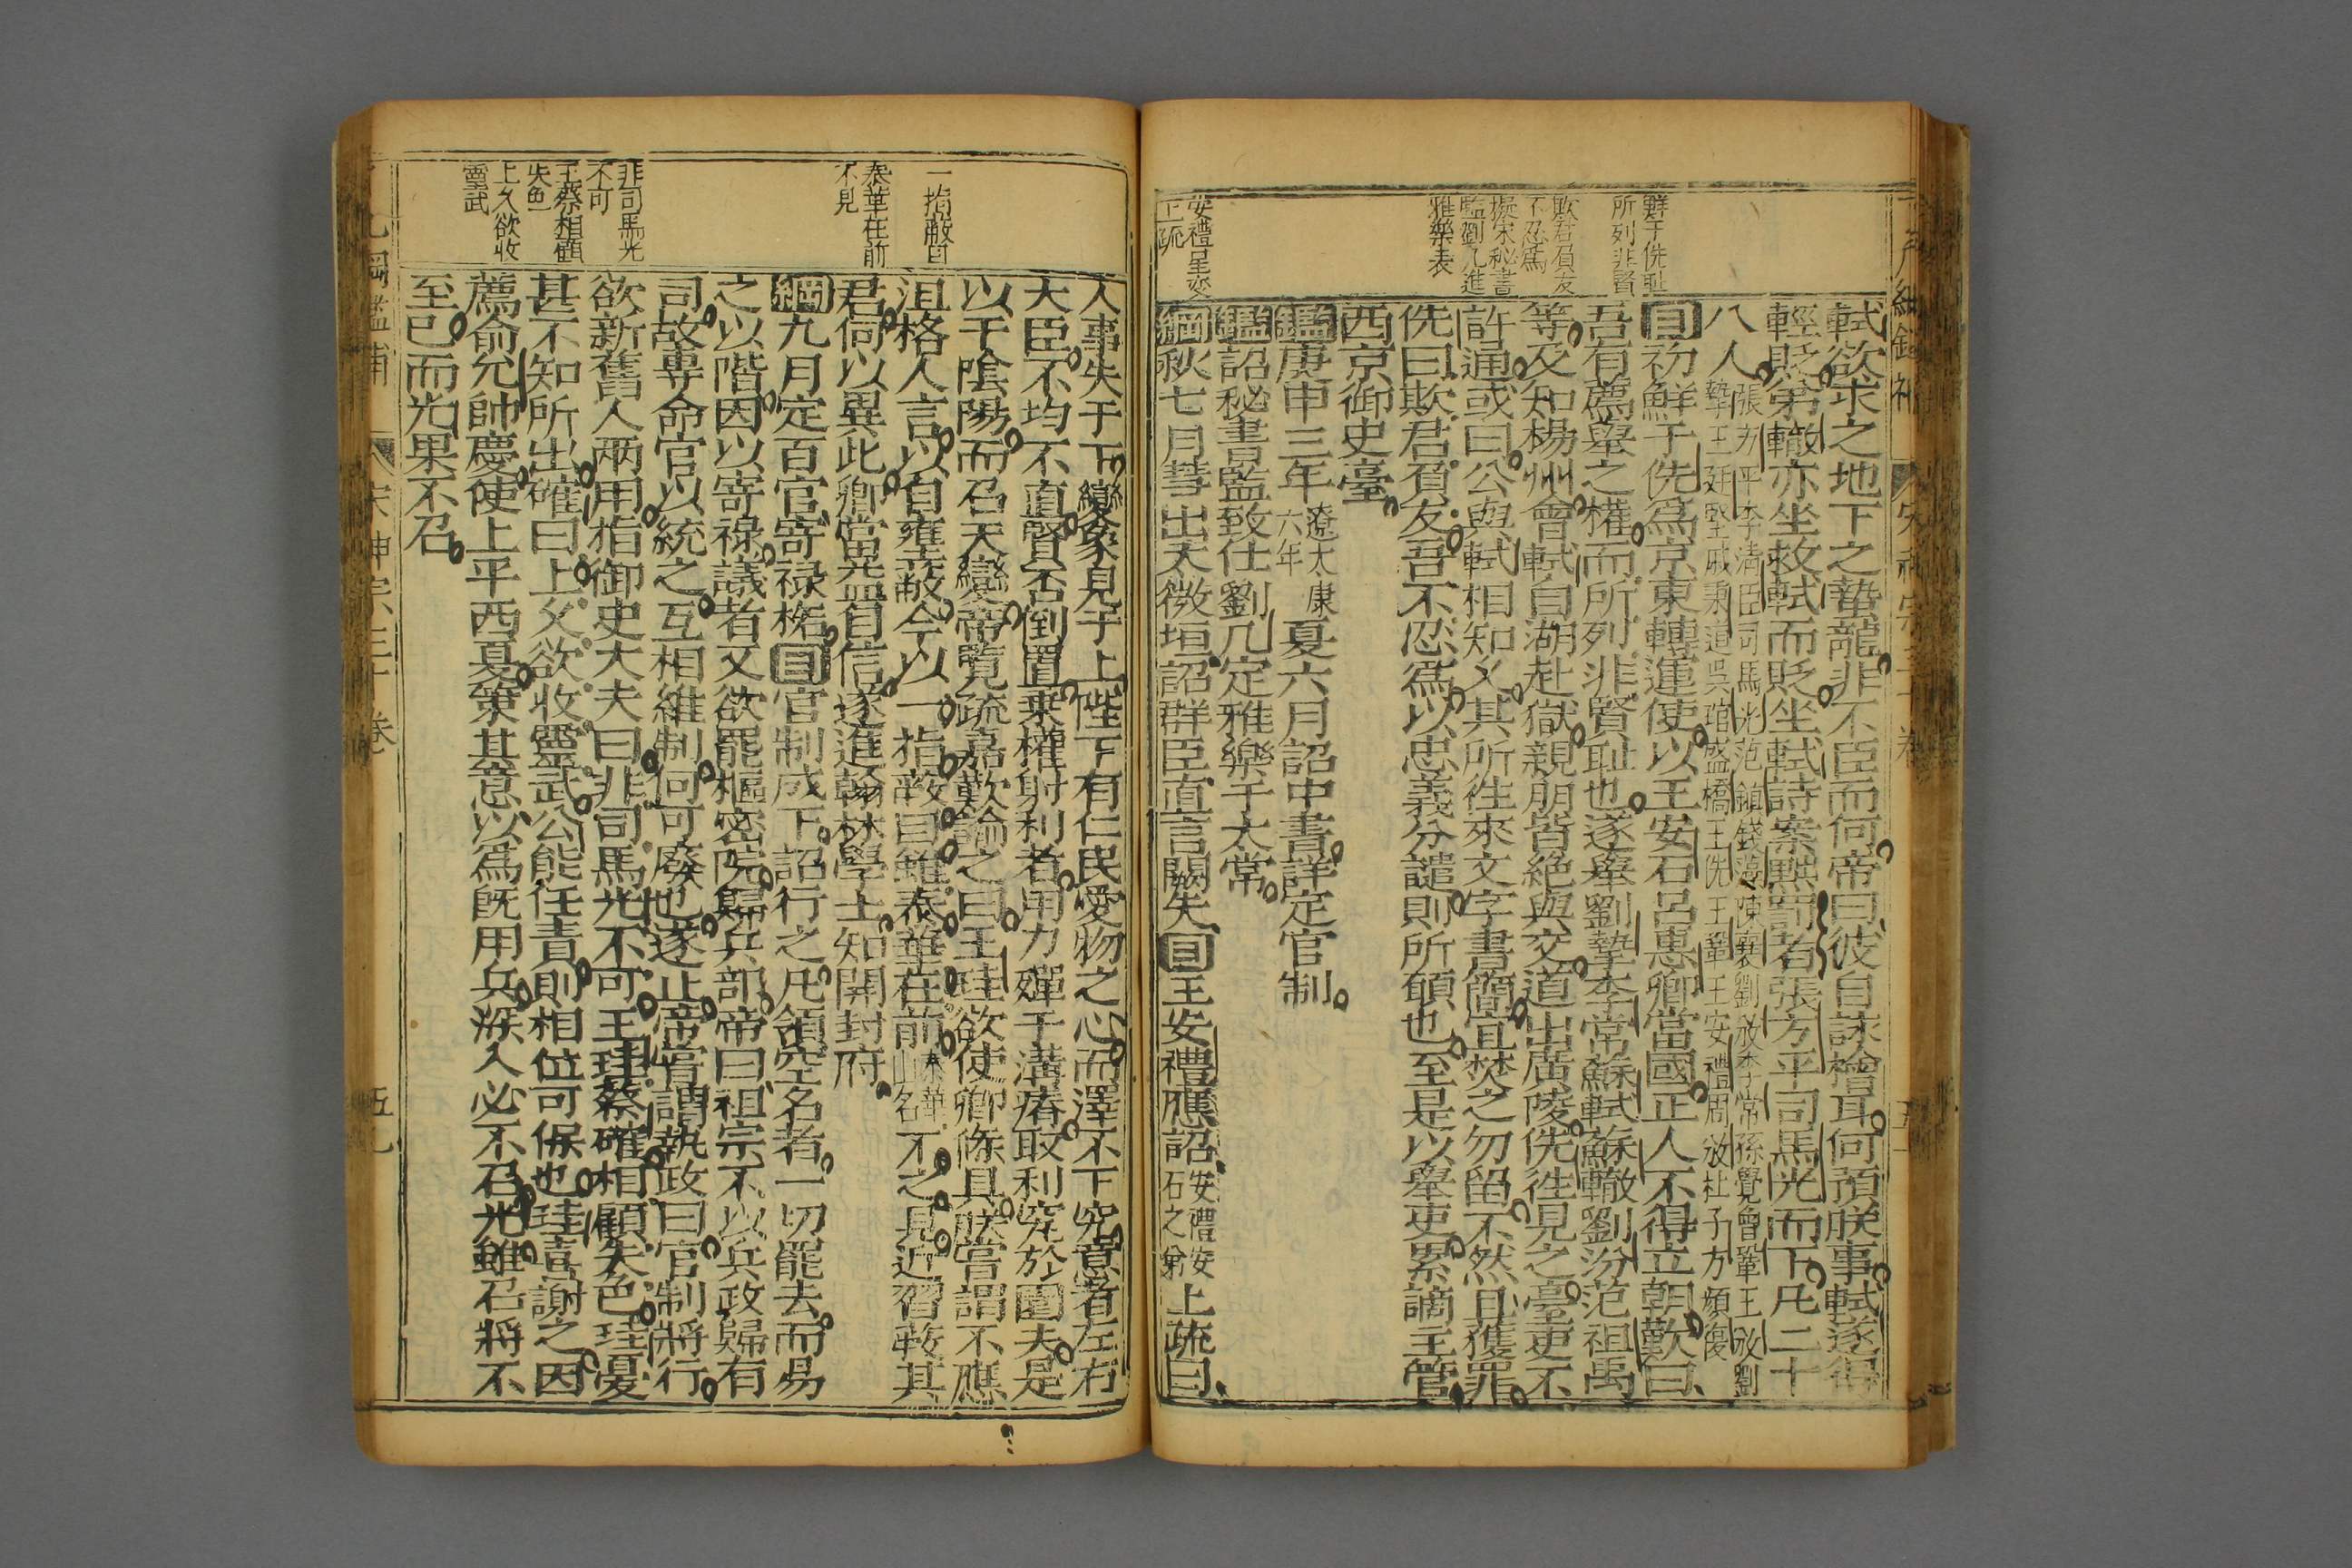 鮮于侁恥
所列非賢
欺君負友
不忍爲
擬宋秘書
監劉几進
雅樂表
安禮星变
上疏
軾欲求之地下之蟄龍非不臣而何帝曰彼自詠檜耳何預朕事軾遂得
輕貶弟轍亦坐救軾而貶坐軾詩案黜罰者張方平司馬光而下凡二十
八人張方平李清臣司馬光范鎮錢藻陳襄劉攽李常孫覺曾鞏王汾劉
摯王廷堅戚秉道吳琯盛橋王侁王鞏王安禮周邠杜子方頍復
目初鮮于侁爲京東轉運使以王安石呂惠卿當國正人不得立朝歎曰
吾有薦舉之權而所列非賢恥也遂舉劉摯李常蘇軾蘇轍劉汾范祖禹
等及知楊州會軾自湖赴獄親朋皆絕與交道出廣陵侁徃見之臺吏不
許通或曰公與軾相知乆其所徃來文字書簡宜焚之勿留不然且獲罪
侁曰欺君負友吾不忍爲以忠義分譴則所願也至是以舉吏累謫主管
西京御史臺
鑑庚申三年遼太康六年夏六月詔中書詳定官制
鑑詔秘書監致仕劉几定雅樂于太常
綱秋七月彗出太微垣詔群臣直言闕失目王安禮應詔安禮安石之弟上疏曰
一指蔽目
泰華在前
不見
非司馬光
不可
王蔡相顧
失色
上久欲收
靈武
人事失于下變象見于上陛下有仁民愛物之心而澤不下究意者左右
大臣不均不直賢否倒置乗權射利者用力殫于溝瘠取利究於園夫是
以干陰陽而召天變帝覽疏嘉歎諭之曰王珪欲使卿條具朕嘗謂不應
沮格人言以自雍蔽今以一指蔽目雖泰華在前泰華山名不之見近習蔽其
君何以異此卿當益自信遂進翰林學士知開封府
綱九月定百官寄祿格目官制成下詔行之凡領空名者一切罷去而易
之以階因以寄祿議者又欲罷樞密院歸兵部帝曰祖宗不以兵政歸有
司故專命官以統之互相維制何可廢也遂止帝嘗謂執政曰官制將行
欲新舊人兩用指御史大夫曰非司馬光不可王珪蔡確相顧失色珪憂
甚不知所出確曰上乆欲收靈武公能任責則相位可保也珪喜謝之因
薦俞允帥慶使上平西夏策其意以爲旣用兵深入必不召光雖召將不
至已而光果不召
宋神宗三十卷